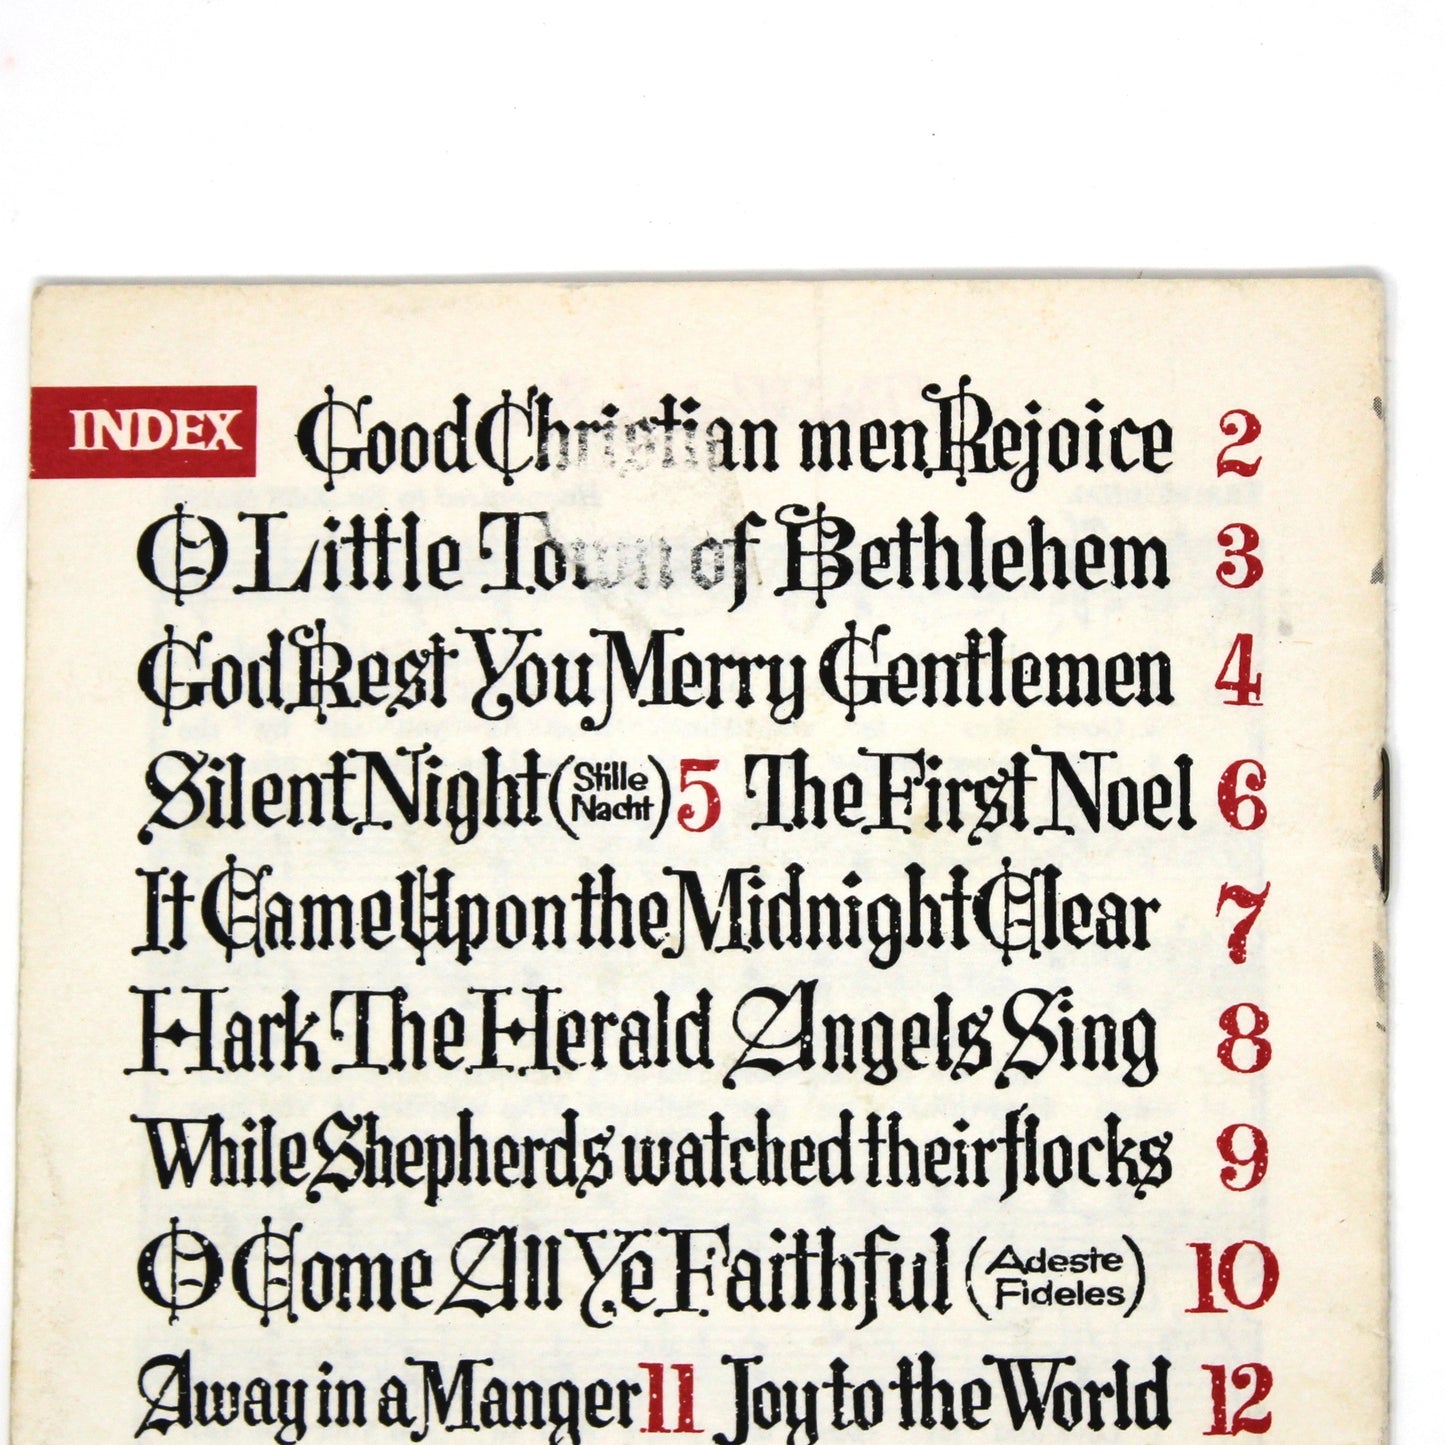 INDEX Good Christian men Rejoice 2
O Little Town of Bethlehem 3
God Rest You Merry Gentlemen 4
Silent Night (Stille Nacht) 5 The First Noel 6
It Came Upon the Midnight Clear 7
Hark The Herald Angels Sing 8
While Shepherds watched their flocks 9
O Come All Ye Faithful (Adeste Fideles) 10
Away in a Manger 11 Joy to the World 12